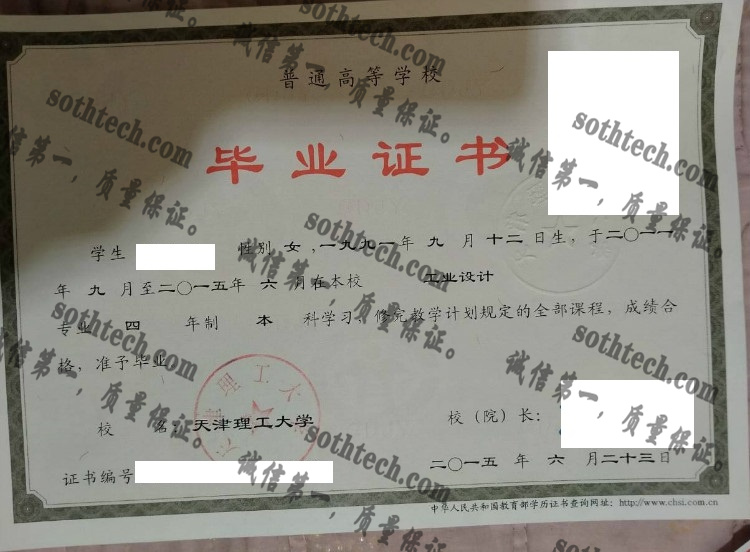 普通高等学校
毕业证书
学生 性别 女 ,一九九一年 九 月 十二 日生,于二〇一一
年 九 月至二〇一五年 六 月在本校 工业设计
专业 四 年制 本 科学习,修完教学计划规定的全部课程,成绩合
格,准予毕业
校 名:天津理工大学
校(院)长:
证书编号
二〇一五 年 六 月二十三日
中华人民共和国教育部学历证书查询网址:http://www.chsi.com.cn
天津理工大学
sothtech.com
诚信第一,质量保证。
sothtech.com
诚信第一,质量保证。
sothtech.com
诚信第一,质量保证。
sothtech.com
诚信第一,质量保证。
sothtech.com
诚信第一,质量保证。
sothtech.com
诚信第一,质量保证。
sothtech.com
诚信第一,质量保证。
sothtech.com
诚信第一,质量保证。